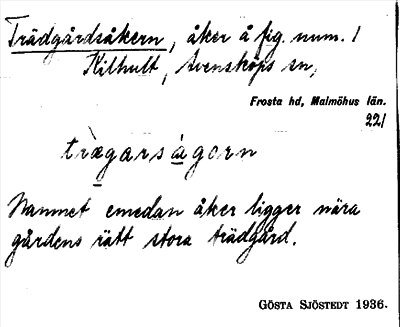 Trädgårdsåkern, åker å fig. num. 1
Kilhult, Svensköps sn,
Frosta hd, Malmöhus län.
221
trægarsågorn
Namnet emedan åker ligger nära
gårdens rätt stora trädgård.
GÖSTA SJÖSTEDT 1936.